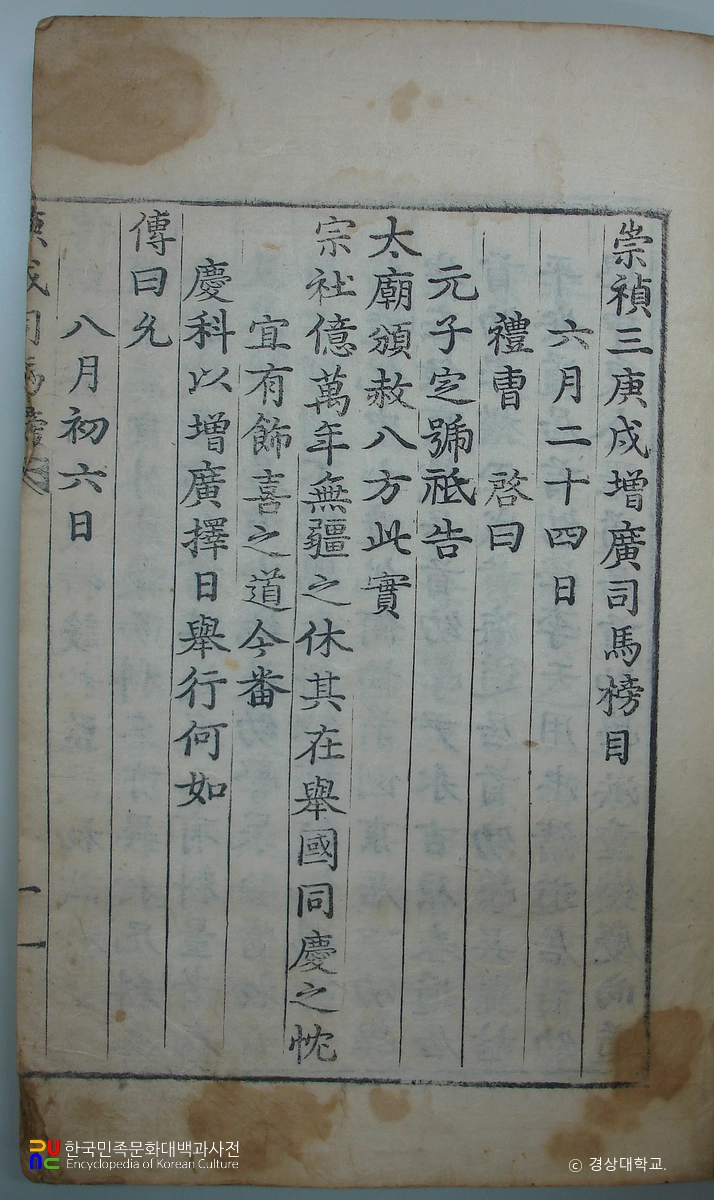 崇禎三庚戌增廣司馬榜目
六月二十四日
禮曹 啓曰
元子定號祗告
太廟頒赦八方此實
宗社億萬年無疆之休其在擧國同慶之忱
宜有飾喜之道今番
慶科以增廣擇日擧行何如
傳曰允
八月初六日
庚戌司馬榜
한국민족문화대백과사전
Encyclopedia of Korean Culture
ⓒ 경상대학교.